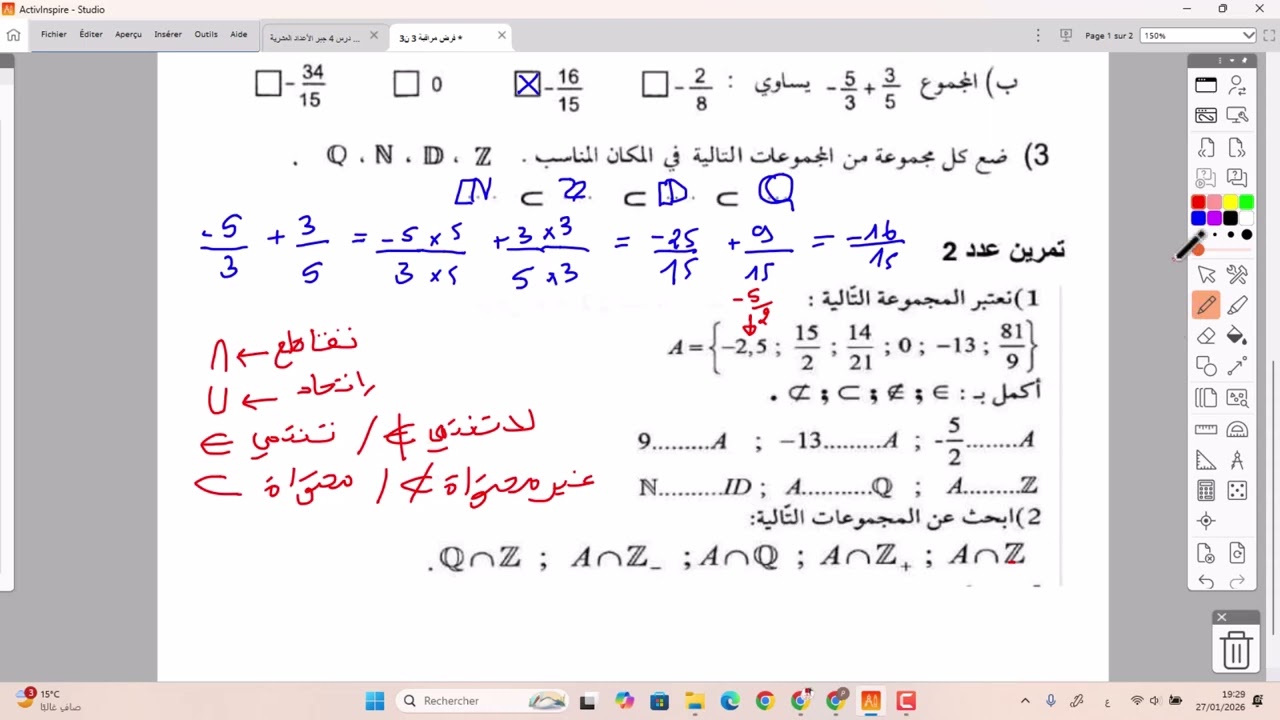 ActivInspire - Studio
Fichier Éditer Aperçu Insérer Outils Aide
درس 4 جبر الأعداد العشرية ...
* فرض مراقبة 3 ن3
Page 1 sur 2 150%
ب) المجموع -5/3 + 3/5 يساوي : -2/8 -16/15 0 -34/15
3) ضع كل مجموعة من المجموعات التالية في المكان المناسب . ℚ ، ℕ ، 𝔻 ، ℤ .
ℕ ⊂ ℤ ⊂ 𝔻 ⊂ ℚ
-5/3 + 3/5 = -5×5/3×5 + 3×3/5×3 = -25/15 + 9/15 = -16/15
تمرين عدد 2
1) نعتبر المجموعة التّالية :
-5/2
A = { -2,5 ; 15/2 ; 14/21 ; 0 ; -13 ; 81/9 }
أكمل بـ : ∈ ; ∉ ; ⊂ ; ⊄ .
9.........A ; -13.........A ; -5/2........A
ℕ..........ID ; A...........ℚ ; A........ℤ
2) ابحث عن المجموعات التّالية:
.ℚ∩ℤ ; A∩ℤ₋ ; A∩ℚ ; A∩ℤ₊ ; A∩ℤ
∩ ← تقاطع
∪ ← اتحاد
∈ تنتمي / ∉ لا تنتمي
⊂ محتواة / ⊄ غير محتواة
3
15°C
صافٍ غالبًا
Rechercher
ع
19:29
27/01/2026